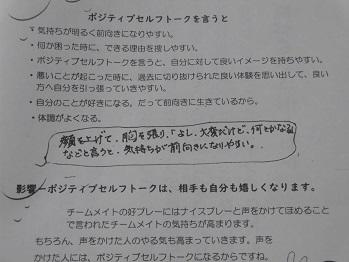 ポジティブセルフトークを言うと
・気持ちが明るく前向きになりやすい。
・何か困った時に、できる理由を捜しやすい。
・ポジティブセルフトークを言うと、自分に対して良いイメージを持ちやすい。
・悪いことが起こった時に、過去に切り抜けられた良い体験を思い出して、良い
方へ自分を引っ張っていきやすい。
・自分のことが好きになる。だって前向きに生きているから。
・体調がよくなる。
顔を上げて、胸を張り、「よし、大変だけど、何とかなる
などと言うと、気持ちが前向きになりやすい。
影響ーポジティブセルフトークは、相手も自分も嬉しくなります。
チームメイトの好プレーにはナイスプレーと声をかけてほめること
で言われたチームメイトの気持ちが高まります。
もちろん、声をかけた人のやる気も高まっていきます。声を
かけた人には、ポジティブセルフトークになるからですね。